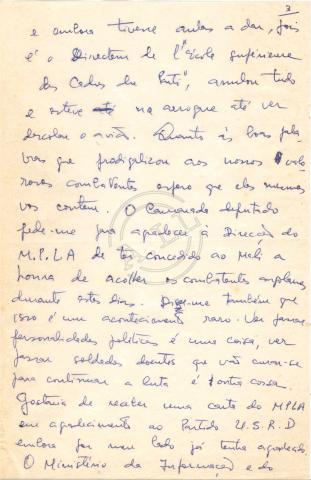 3
e embora tivesse aulas a dar, pois
é o Director de l'"École supérieure
des Cadres du Parti", anulou tudo
e esteve na aerogare até ver
descolar o avião. Quanto às boas pala-
vras que prodigalizou aos nossos valo-
rosos combatentes espero que eles mesmos
vos contem. O Camarada deputado
pede-me para agradecer à Direcção do
M.P.L.A de ter concedido ao Mali a
honra de acolher os combatentes angolanos
durante estes dias. Disse-me também que
isso é um acontecimento raro. Ver passar
personalidades políticas é uma coisa, ver
passar soldados doentes que vão curar-se
para continuar a luta é outra coisa.
Gostaria de receber uma carta do MPLA
em agradecimento ao Partido U.S.R.D
embora por meu lado já tenha agradecido.
O Ministério da Informação e do